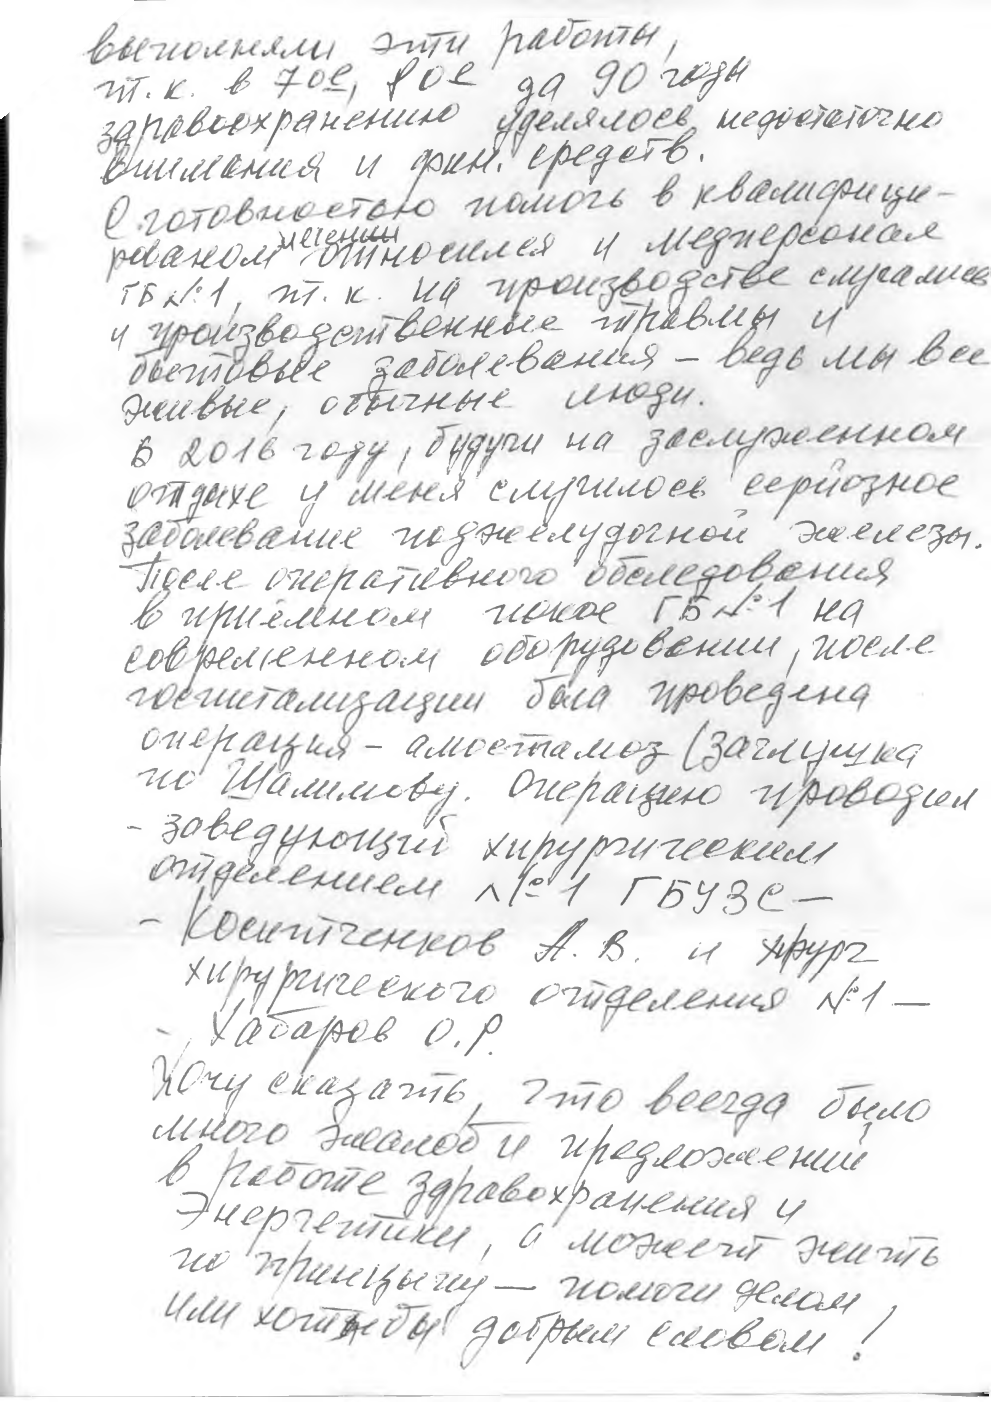 выполняли эти работы,
т.к. в 70е, 80е да 90 годы
здравоохранению уделялось недостаточно
внимания и фин. средств.
С готовностью помочь в квалифици-
рованом лечении относился и медперсонал
ГБ №1, т.к. на производстве случались
и производственные травмы и
бытовые заболевания – ведь мы все
живые, обычные люди.
В 2016 году, будучи на заслуженном
отдыхе у меня случилось серйозное
заболевание поджелудочной железы.
После оперативного обследования
в приёмном покое ГБ №1 на
современном оборудовании, после
госпитализации была проведена
операция – амостамоз (заглушка
по Шалимову. Операцию проводил
- заведующий хирургическим
отделением №1 ГБУЗС –
- Коситченков А.В. и хирург
хирургического отделения №1 –
- Хабаров О.Р.
Хочу сказать, что всегда было
много жалоб и предложений
в работе здравохранения и
Энергетики, а может жить
по принцыпу – помоги делом,
или хотя бы добрым словом!